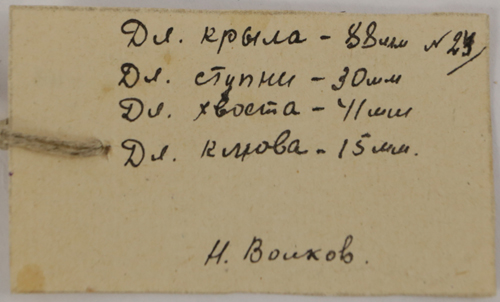 Дл. крыла - 88мм №24
Дл. ступни - 30мм
Дл. хвоста - 41мм
Дл. клюва - 15мм.
Н. Волков.